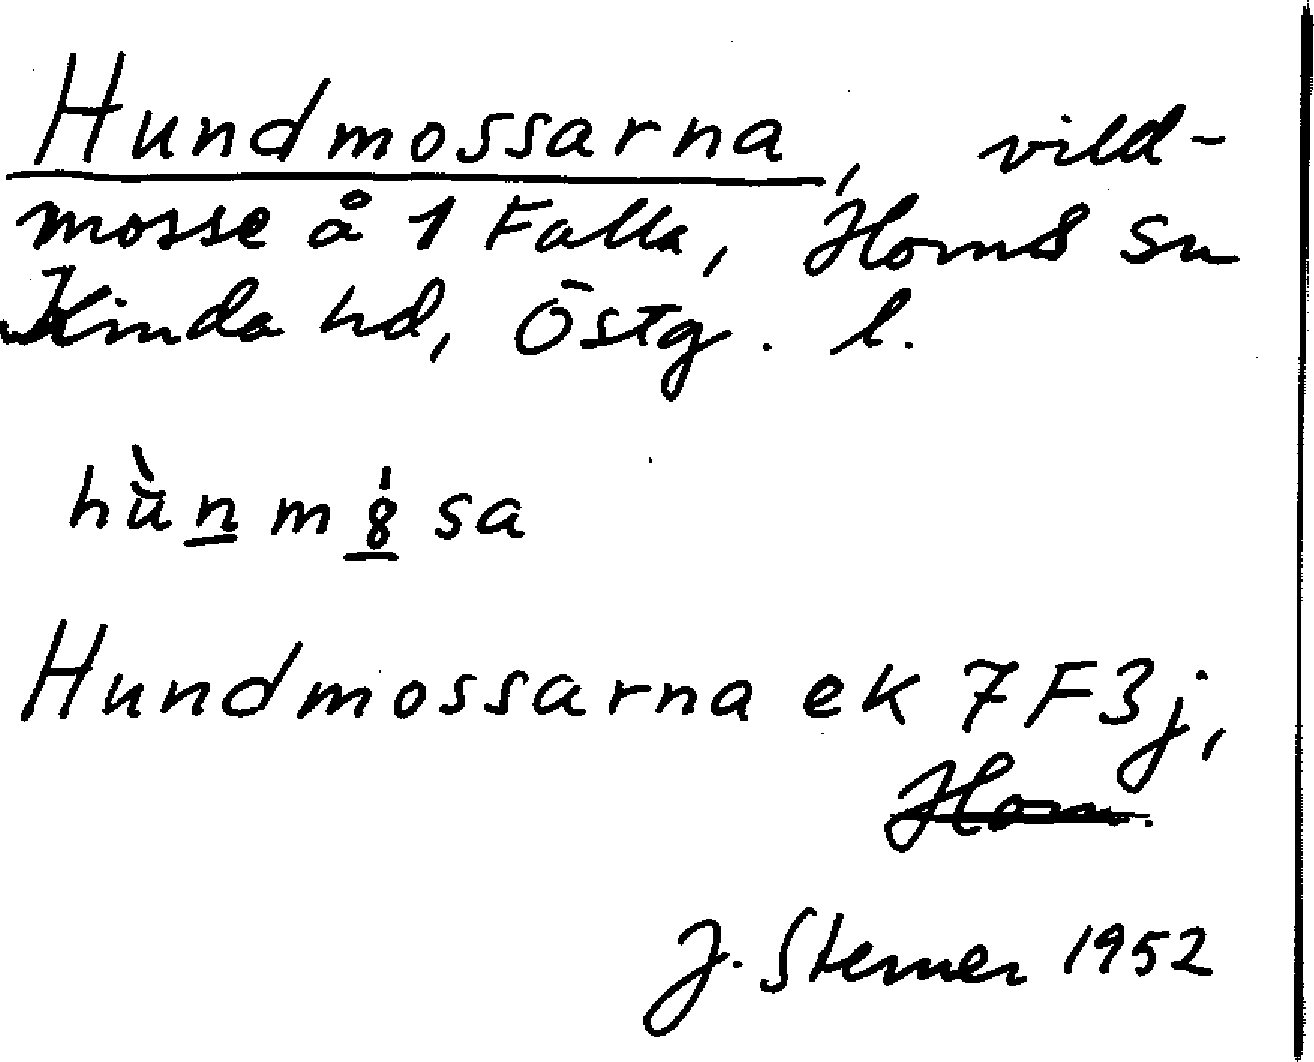 Hundmossarna, vild-
mosse å 1 Falla, Horns sn
Kinda hd, Östg. l.
hùnm8̍sa
Hundmossarna ek 7F3j,
Horn.
J. Sterner 1952